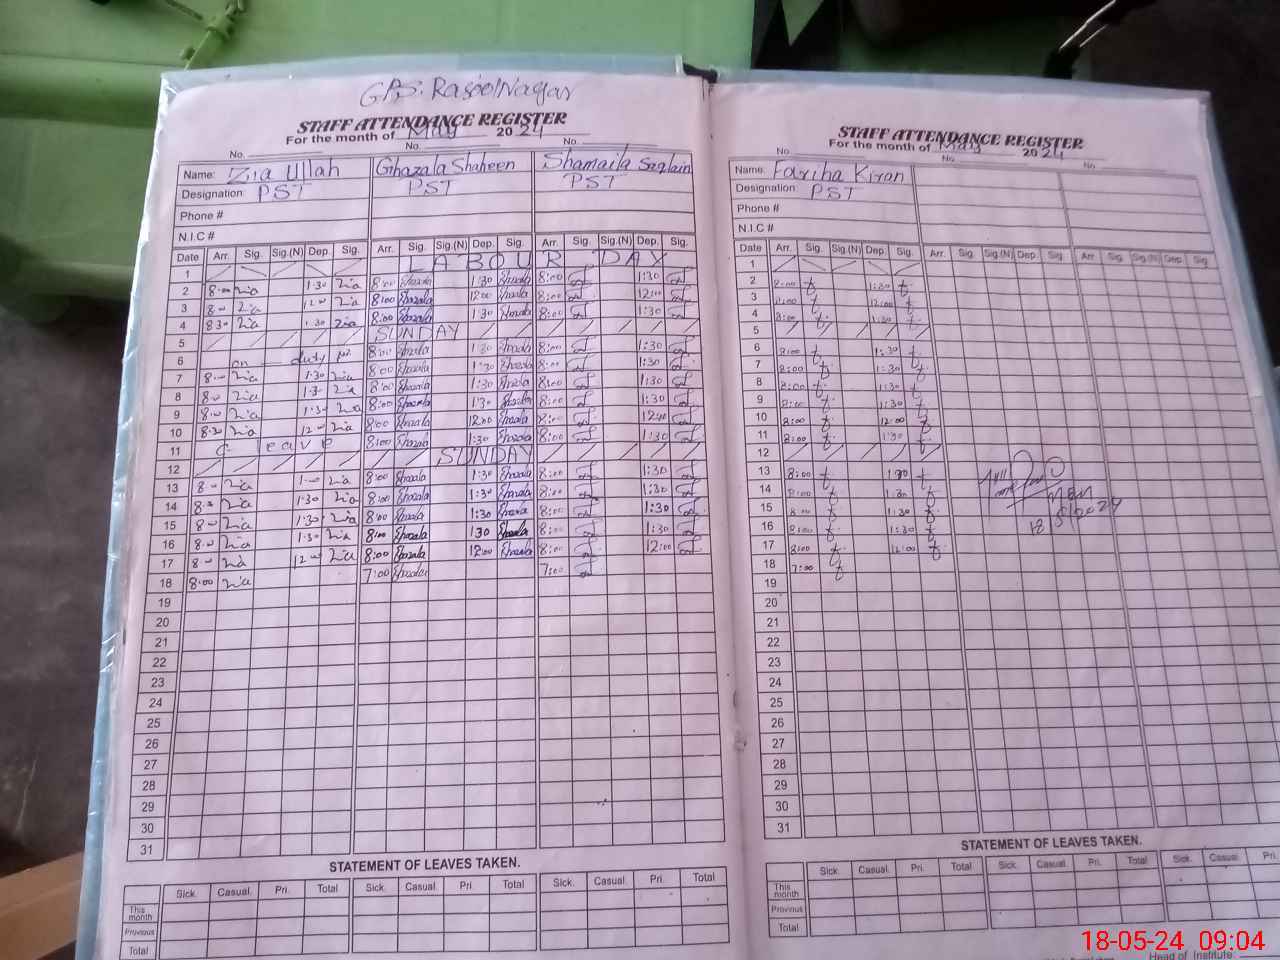 GPS. Rasool Nagar
STAFF ATTENDANCE REGISTER
For the month of May 2024
No. No. No.
Name: Zia Ullah Ghazala Shaheen Shamaila Seqlain
Designation PST PST PST
Phone #
N.I.C #
Date Arr. Sig. Sig.(N) Dep. Sig. Arr. Sig. Sig.(N) Dep. Sig. Arr. Sig. Sig.(N) Dep. Sig.
1 LABOUR DAY
2 8:00 Zia 1:30 Zia 8:00 Ghazala 1:30 Ghazala 8:00 1:30
3 8:00 Zia 12:00 Zia 8:00 Ghazala 12:00 Ghazala 8:00 12:00
4 8:30 Zia 1:30 Zia 8:00 Ghazala 1:30 Ghazala 8:00 1:30
5 SUNDAY
6 on duty 8:00 Ghazala 1:30 Ghazala 8:00 1:30
7 8:00 Zia 1:30 Zia 8:00 Ghazala 1:30 Ghazala 8:00 1:30
8 8:00 Zia 1:30 Zia 8:00 Ghazala 1:30 Ghazala 8:00 1:30
9 8:00 Zia 1:30 Zia 8:00 Ghazala 1:30 Ghazala 8:00 1:30
10 8:30 Zia 12:00 Zia 8:00 Ghazala 12:00 Ghazala 8:00
11 eave 8:00 Ghazala 1:30 Ghazala 8:00 1:30
12 SUNDAY
13 8:00 Zia Zia 8:00 Ghazala 1:30 Ghazala 8:00 1:30
14 8:30 Zia 1:30 Zia 8:00 Ghazala 1:30 Ghazala 8:00 1:30
15 8:00 Zia 1:30 Zia 8:00 Ghazala 1:30 Ghazala 8:00 1:30
16 8:00 Zia 1:30 Zia 8:00 Ghazala 1:30 Ghazala 8:00 1:30
17 8:00 Zia 12:00 Zia 8:00 Ghazala 12:00 Ghazala 8:00 12:00
18 8:00 Zia 7:00 Ghazala 7:00
19
20
21
22
23
24
25
26
27
28
29
30
31
STATEMENT OF LEAVES TAKEN.
Sick. Casual. Pri. Total Sick. Casual. Pri. Total Sick. Casual. Pri. Total
This month
Previous
Total
STAFF ATTENDANCE REGISTER
For the month of May 2024
No. No. No.
Name: Fariha Kiran
Designation: PST
Phone #
N.I.C #
Date Arr. Sig. Sig.(N) Dep. Sig. Arr. Sig. Sig.(N) Dep. Sig. Arr. Sig. Sig.(N) Dep. Sig
1
2 8:00 1:30
3 8:00 12:00
4 8:00 1:30
5
6 8:00 1:30
7 8:00 1:30
8 8:00 1:30
9 8:00 1:30
10 8:00 12:00
11 8:00 1:30
12
13 8:00 1:30
14 8:00 1:30
15 8:00 1:30
16 8:00 1:30
17 8:00 12:00
18 7:00
19
20
21
22
23
24
25
26
27
28
29
30
31
18/5/2024
STATEMENT OF LEAVES TAKEN.
Sick. Casual. Pri. Total Sick. Casual. Pri. Total Sick. Casual. Pri.
This month
Previous
Total
Head of Institute:
18-05-24 09:04